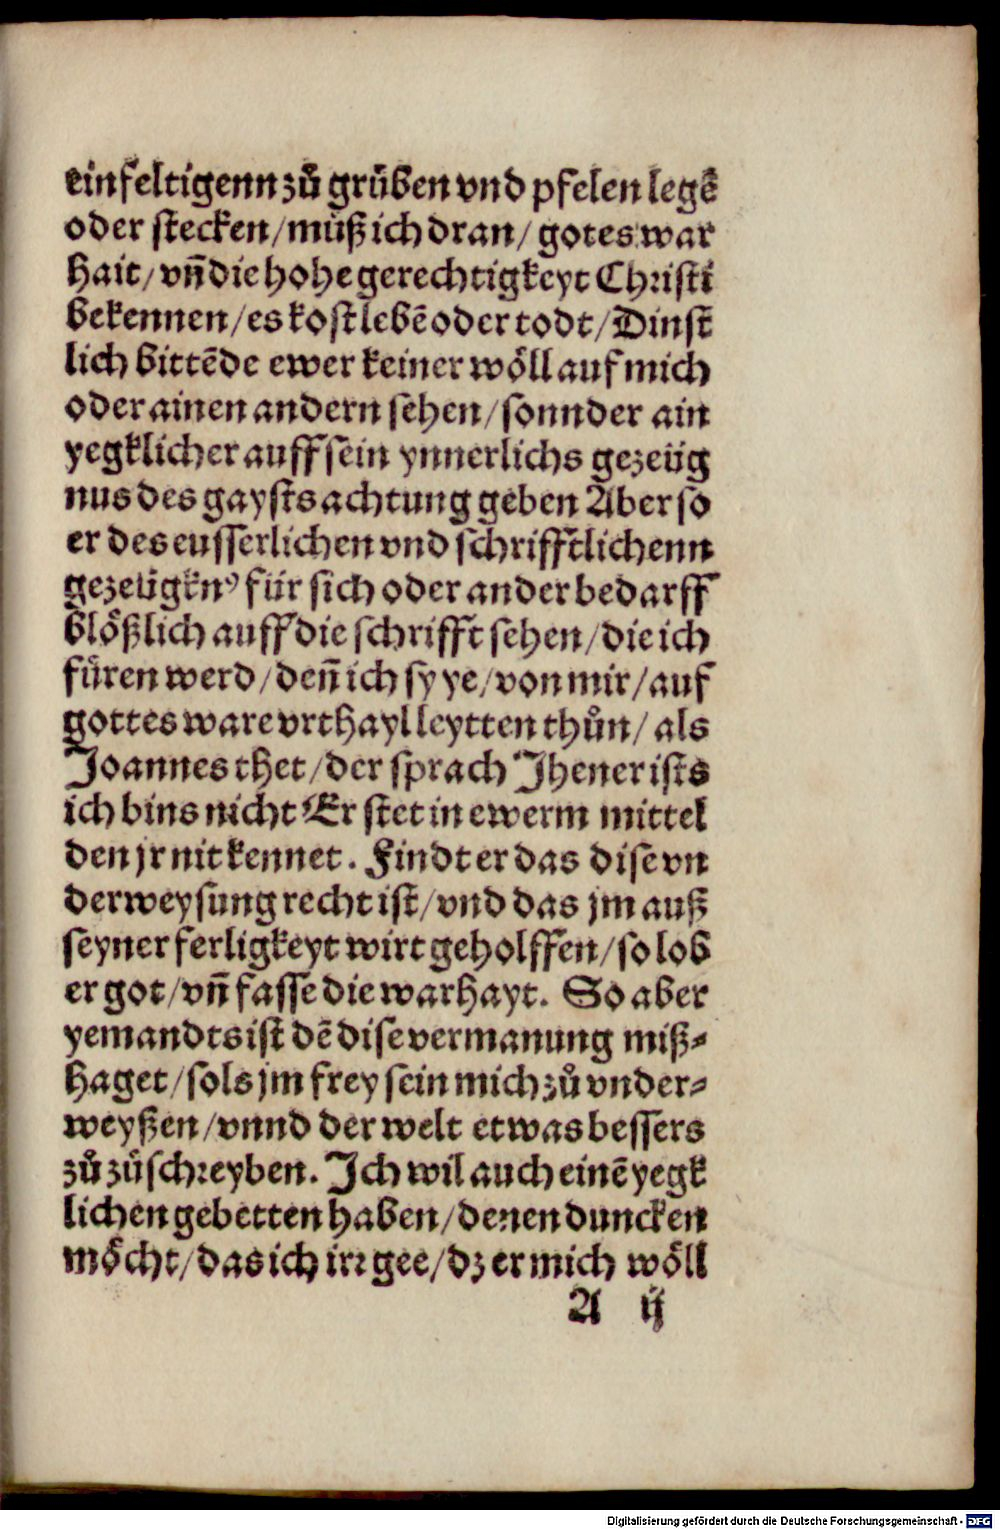 einfeltigenn zů grůben vnd pfelen legē
oder stecken/ můß ich dran/ gotes war
hait/ vñ die hohe gerechtigkeyt Christi
bekennen/ es kost lebē oder todt/ Dinst
lich bittēde ewer keiner wöll auf mich
oder ainen andern sehen/ sonnder ain
yegklicher auff sein ynnerlichs gezeüg
nus des gaysts achtung geben Aber so
er des eusserlichen vnd schrifftlichenn
gezeügknꝰ für sich oder ander bedarff
blößlich auff die schrifft sehen/ die ich
füren werd/ deñ ich sy ye/ von mir/ auf
gottes ware vrthayl leytten thůn/ als
Joannes thet/ der sprach Jhener ists
ich bins nicht Er stet in ewerm mittel
den jr nit kennet. Findt er das dise vn
derweysung recht ist/ vnd das jm auß
seyner ferligkeyt wirt geholffen/ so lob
er got/ vñ fasse die warhayt. So aber
yemandts ist dē dise vermanung miß⸗
haget/ sols jm frey sein mich zů vnder⸗
weyßen/ vnnd der welt etwas bessers
zů zůschreyben. Ich wil auch einē yegk
lichen gebetten haben/ denen duncken
möcht/ das ich irr gee/ dz er mich wöll
A ij
Digitalisierung gefördert durch die Deutsche Forschungsgemeinschaft - DFG